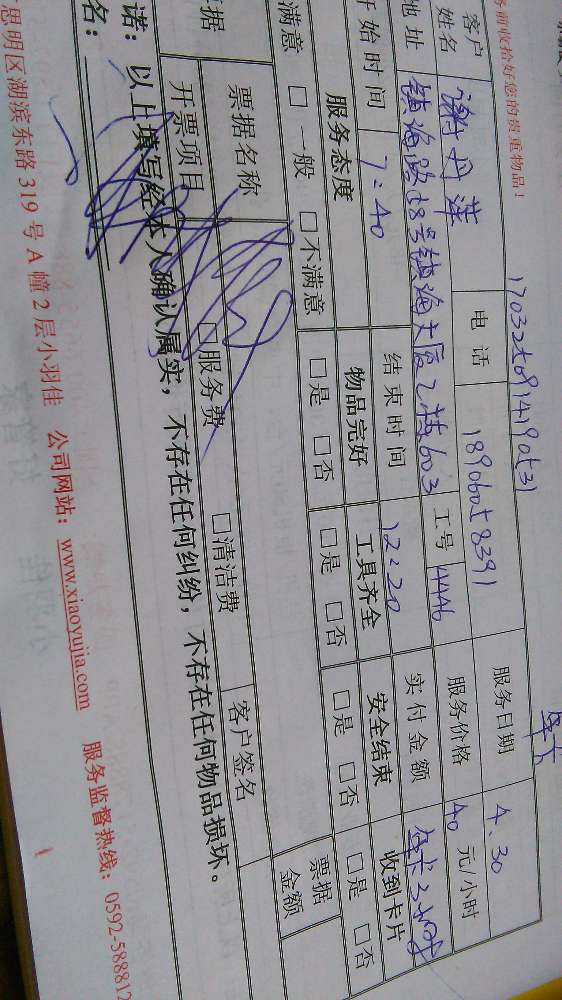 务前收拾好您的贵重物品！
客户姓名 电话 服务日期 4.30
地址 镇海路 号镇海大厦2楼603 工号 4446 服务价格 40 元/小时
开始时间 7:40 结束时间 12:20 实付金额
服务态度 物品完好 工具齐全 安全结束 收到卡片
满意 □一般 □不满意 □是 □否 □是 □否 □是 □否 □是 □否
据 票据名称 客户签名 票据金额
开票项目 □服务费 □清洁费
诺：以上填写经本人确认属实，不存在任何纠纷，不存在任何物品损坏。
名：
思明区湖滨东路 319 号 A 幢 2 层小羽佳 公司网站：www.xiaoyujia.com 服务监督热线：0592-588812